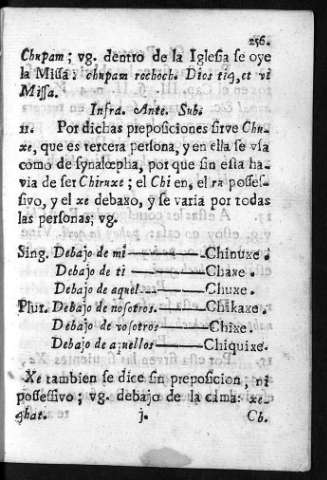 256.
Chupam; vg. dentro de la Iglesia se oye
la Missa: chupam rochoch. Dios tiq,et vi
Missa.
Infra. Ante. Sub.
11. Por dichas preposiciones sirve Chu-
xe, que es tercera persona, y en ella se vsa
como de synalœpha, por que sin esta ha-
via de ser Chiruxe; el Chi en, el ru posses-
sivo, y el xe debaxo, y se varia por todas
las personas; vg.
Sing. Debajo de mi — Chinuxe.
Debajo de ti — Chaxe.
Debajo de aquel. — Chuxe.
Plur. Debajo de nosotros. — Chikaxe.
Debajo de vosotros — Chixe.
Debajo de aquellos — Chiquixe.
Xe tambien se dice sin preposicion, ni
possessivo; vg. debajo de la cama: xe-
ɋhat. j. Cb.